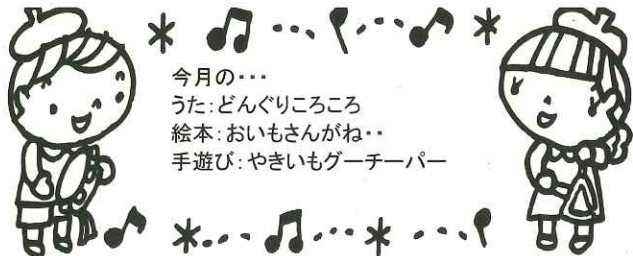 今月の・・・
うた:どんぐりころころ
絵本:おいもさんがね・・
手遊び:やきいもグーチーパー